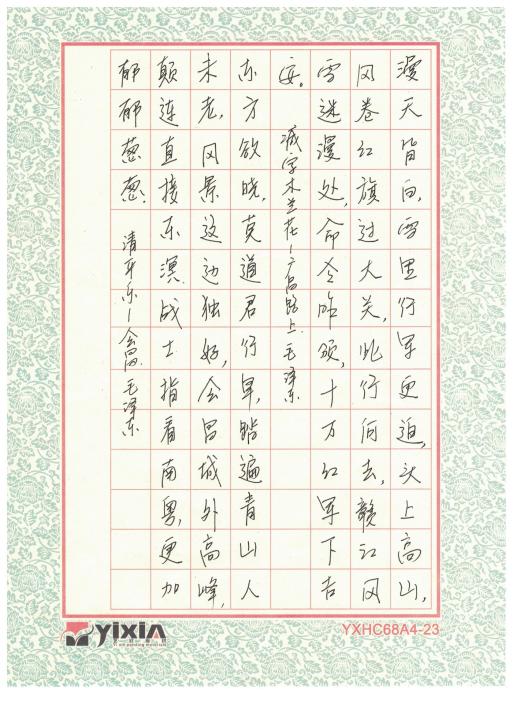 漫天皆白,雪里行军更迫,头上高山,
风卷红旗过大关,此行何去,赣江风
雪迷漫处,命令昨颁,十万红军下吉
安。
减字木兰花-广昌路上.毛泽东
东方欲晓,莫道君行早,踏遍青山人
未老,风景这边独好,会昌城外高峰,
颠连直接东溟.战士指看南粤,更加
郁郁葱葱.
清平乐-会昌.毛泽东
YIXIN
YXHC68A4-23